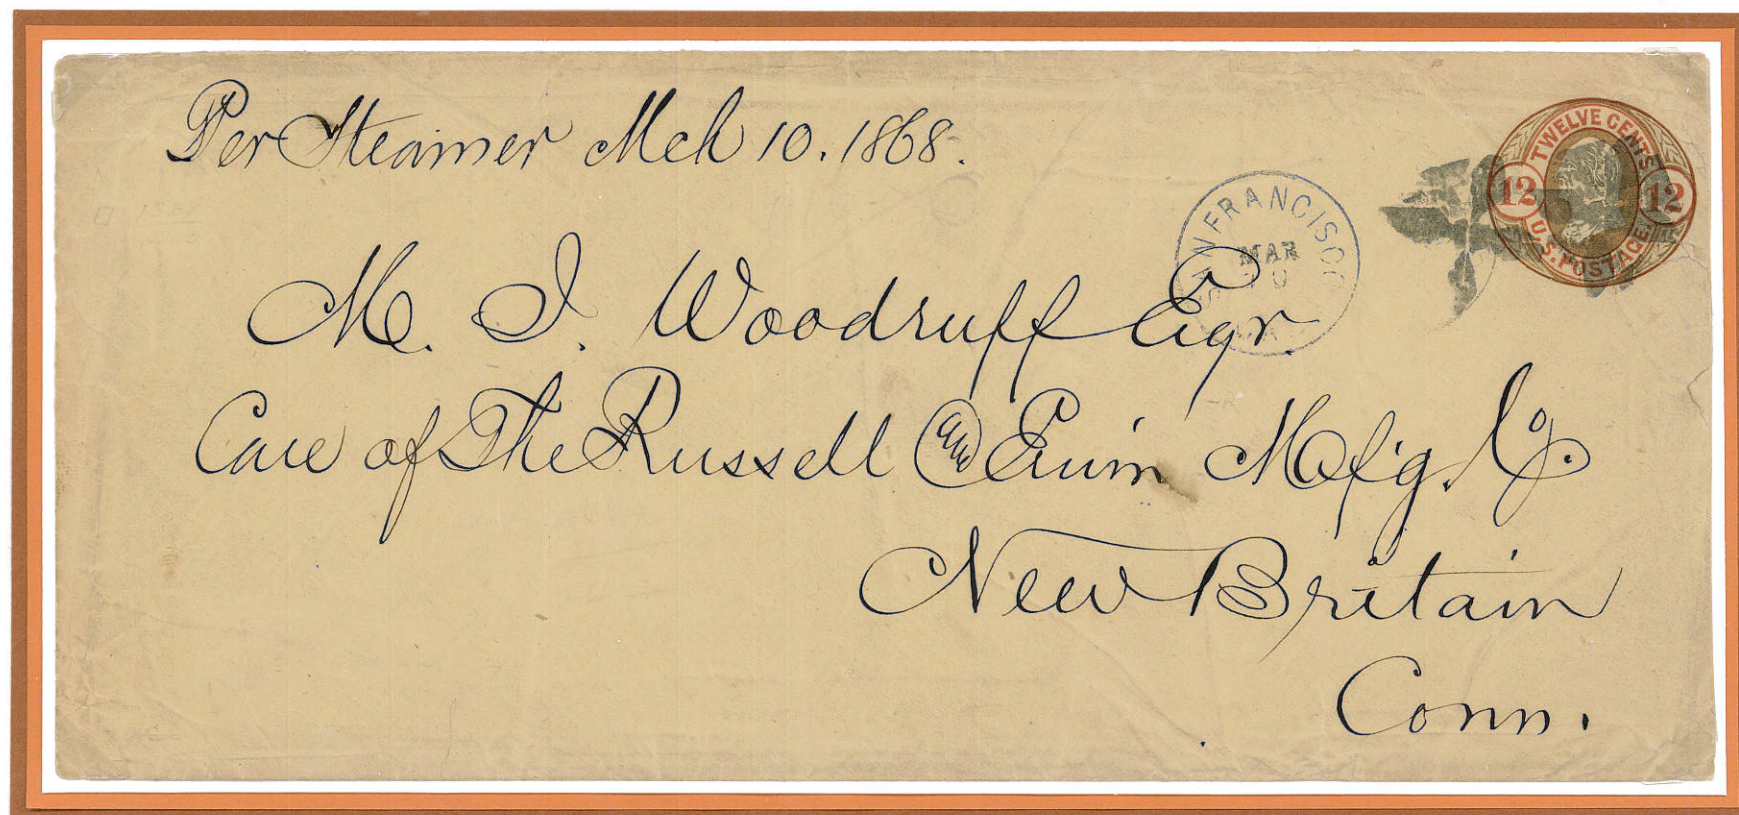 Per Steamer Mch 10. 1868.
TWELVE CENTS
12 12
U.S. POSTAGE
SAN FRANCISCO
MAR
M. I. Woodruff Esqr.
Care of The Russell and Erwin Mof'g. Co.
New Britain
Conn.